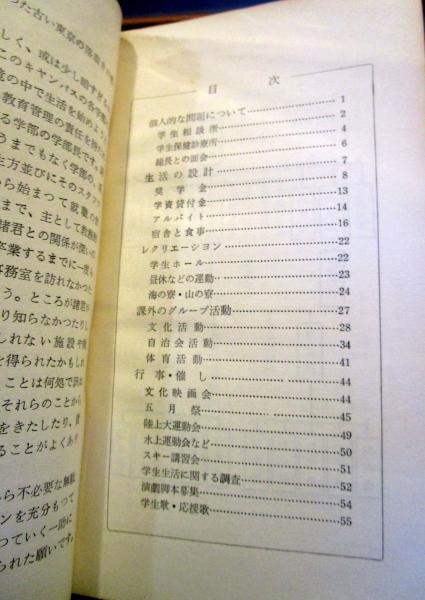 目次
個人的な問題について 1
学生相談所 2
学生保健診療所 4
総長との面会 6
生活の設計 8
奨学金 8
学資貸付金 13
アルバイト 14
宿舎と食事 16
レクリエーション 22
学生ホール 22
昼休などの運動 23
海の寮・山の寮 24
課外のグループ活動 27
文化活動 28
自治会活動 34
体育活動 41
行事・催し 44
文化映画会 44
五月祭 45
陸上大運動会 49
水上運動会など 50
スキー講習会 51
学生生活に関する調査 52
演劇脚本募集 54
学生歌・応援歌 55
しく、或は少し
このキャンパスの各
の中で生活を始めよう
教育管理の責任を
る学部の学部長です。
うまでもなく学部の、
生方並びにそのスタッフ
ら始まつて就職の
まで、主として教務
諸君との関係が深いの
卒業するまでに一度も
事務室を訪れなかつた
う。ところが諸君が
り知らなかつたりし
しれない施設や
を得られたかもしれ
ことは何処で訊
それらのことから
をきたしたり、貴
ることがよくあり
ら不必要な無駄
ンを充分もつて
つていく一助に
られた願いです。